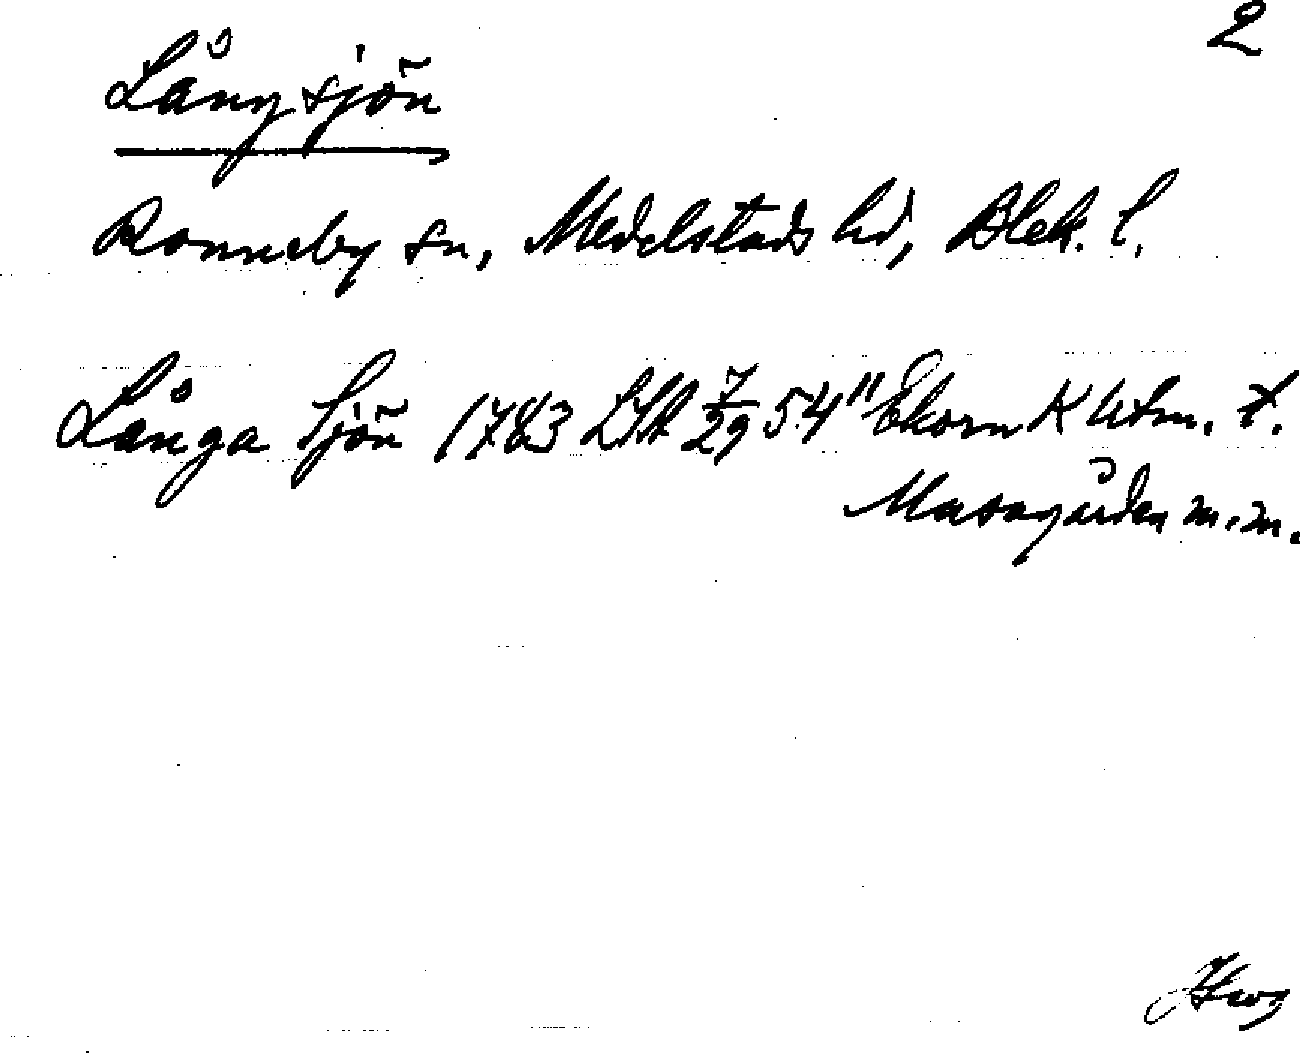 2
Långsjön
Ronneby sn, Medelstads hd, Blek. l.
Långa Sjön 1783 LSA 7/29 54" Ekorn K utm. t.
Masagården m.m.